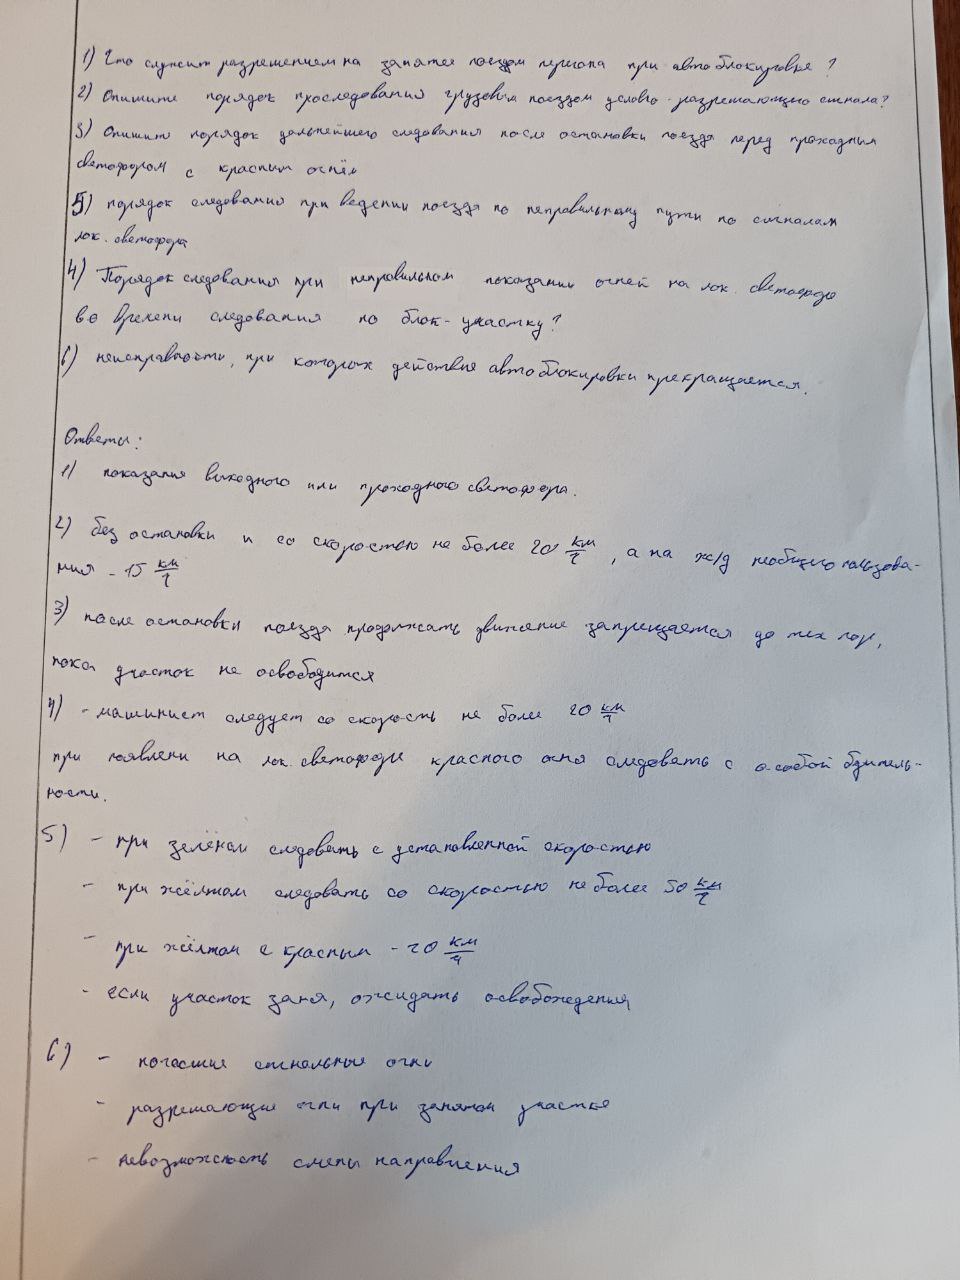 1) Что служит разрешением на занятее поездом перегона при автоблокировке?
2) Опишите порядок проследования грузовым поездом условно-разрешающего сигнала?
3) Опишите порядок дальнейшего следования после остановки поезда перед проходным
светофором с красным огнём
5) порядок следования при ведении поезда по неправильному пути по сигналам
лок. светофора
4) Порядок следования при неправильном показании огней на лок. светофоре
во времени следования по блок-участку?
6) неисправности, при которых действие автоблокировки прекращается.
Ответы:
1) показания выходного или проходного светофора.
2) без остановки и со скоростью не более 20 км/ч, а на ж/д необщего пользова-
ния - 15 км/ч
3) после остановки поезда продолжать движение запрещается до тех пор,
пока участок не освободится
4) - машинист следует со скорость не более 20 км/ч
при появлени на лок. светофоре красного огня следовать с особой бдитель-
ности.
5) - при зелёном следовать с установленной скоростью
- при жёлтом следовать со скоростью не более 50 км/ч
- при жёлтом с красным - 20 км/ч
- если участок заня, ожидать освобождения
6) - погасшие сигнальные огни
- разрешающие огни при занятом участке
- невозможность смены направления